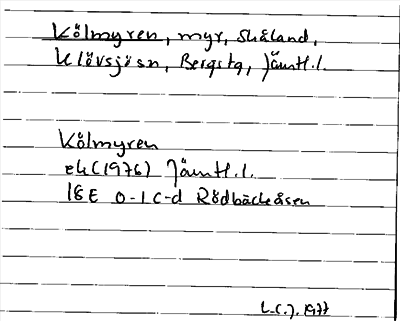 Kölmyren, myr, Skåland,
Klövsjösn, Bergstg, Jämtl.l.
Kölmyren
ek (1976) Jämtl.l.
18E 0-1 c-d Rödbäcksåsen
L.C.J. 1977